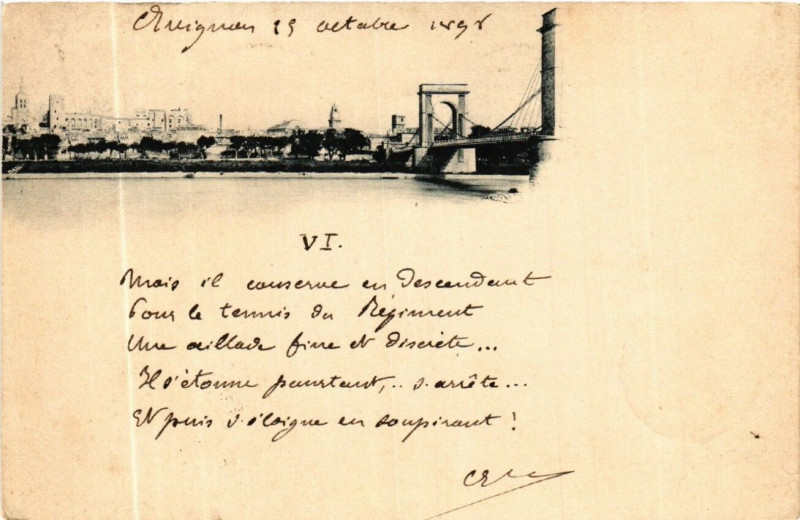 Avignon 25 octobre 1898
VI.
Mais il conserve en descendant
Pour le tennis du Régiment
Une œillade fine et discrète...
Il s'étonne pourtant,.. s'arrête...
Et puis s'éloigne en soupirant !